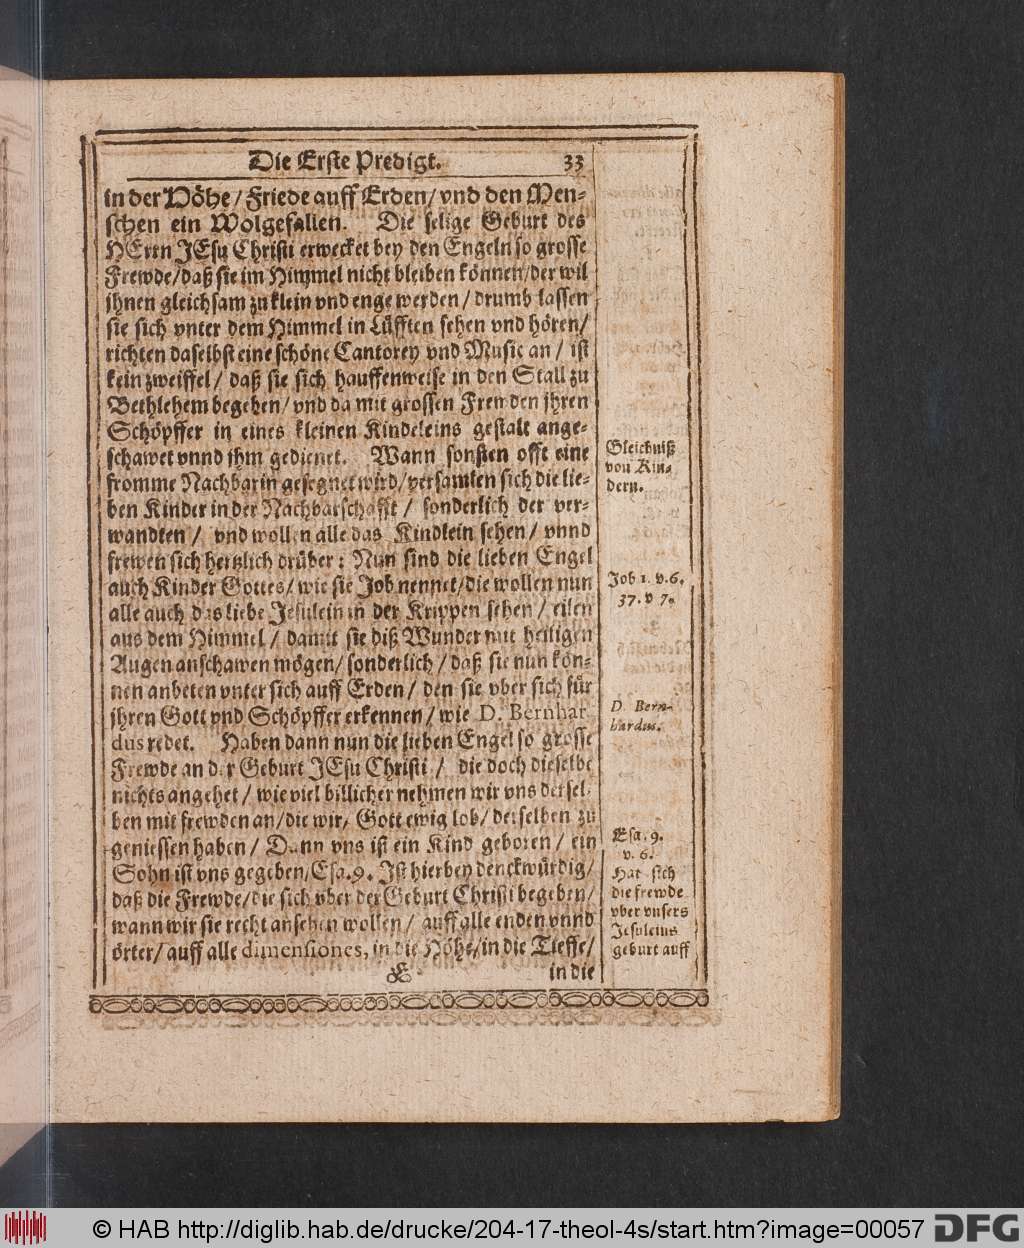 Die Erste Predigt. 33
in der Höhe / Friede auff Erden / vnd den Men-
schen ein Wolgefallen. Die selige Geburt des
HErrn JEsu Christi erwecket bey den Engeln so grosse
Frewde / daß sie im Himmel nicht bleiben können / der wil
jhnen gleichsam zu klein vnd enge werden / drumb lassen
sie sich vnter dem Himmel in Lüfften sehen vnd hören /
richten daselbst eine schöne Cantorey vnd Music an / ist
kein zweiffel / daß sie sich hauffenweise in den Stall zu
Bethlehem begeben / vnd da mit grossen Frewden jhren
Schöpffer in eines kleinen Kindeleins gestalt ange-
schawet vnnd jhm gedienet. Wann sonsten offt eine
fromme Nachbarin gesegnet wird / versamlen sich die lie-
ben Kinder in der Nachbarschafft / sonderlich der ver-
wandten / vnd wollen alle das Kindlein sehen / vnnd
frewen sich hertzlich drüber: Nun sind die lieben Engel
auch Kinder Gottes / wie sie Job nennet / die wollen nun
alle auch das liebe Jesulein in der Krippen sehen / eilen
aus dem Himmel / damit sie diß Wunder mit heiligen
Augen anschawen mögen / sonderlich / daß sie nun kön-
nen anbeten vnter sich auff Erden / den sie vber sich für
jhren Gott vnd Schöpffer erkennen / wie D. Bernhar
dus redet. Haben dann nun die lieben Engel so grosse
Frewde an der Geburt JEsu Christi / die doch dieselbe
nichts angehet / wie viel billicher nehmen wir vns dersel-
ben mit frewden an / die wir, Gott ewig lob / derselben zu
geniessen haben / Dann vns ist ein Kind geboren / ein
Sohn ist vns gegeben / Esa. 9. Ist hierbey denckwürdig /
daß die Frewde / die sich vber der Geburt Christi begeben /
wann wir sie recht ansehen wollen / auff alle enden vnnd
örter / auff alle dimensiones, in die Höhe / in die Tieffe /
E in die
Gleichniß
von Kin-
dern.
Job 1. v. 6.
37. v 7.
D. Bern-
hardus.
Esa. 9.
v. 6.
Hat sich
die frewde
vber vnsers
Jesuleins
geburt auff
© HAB http://diglib.hab.de/drucke/204-17-theol-4s/start.htm?image=00057
DFG